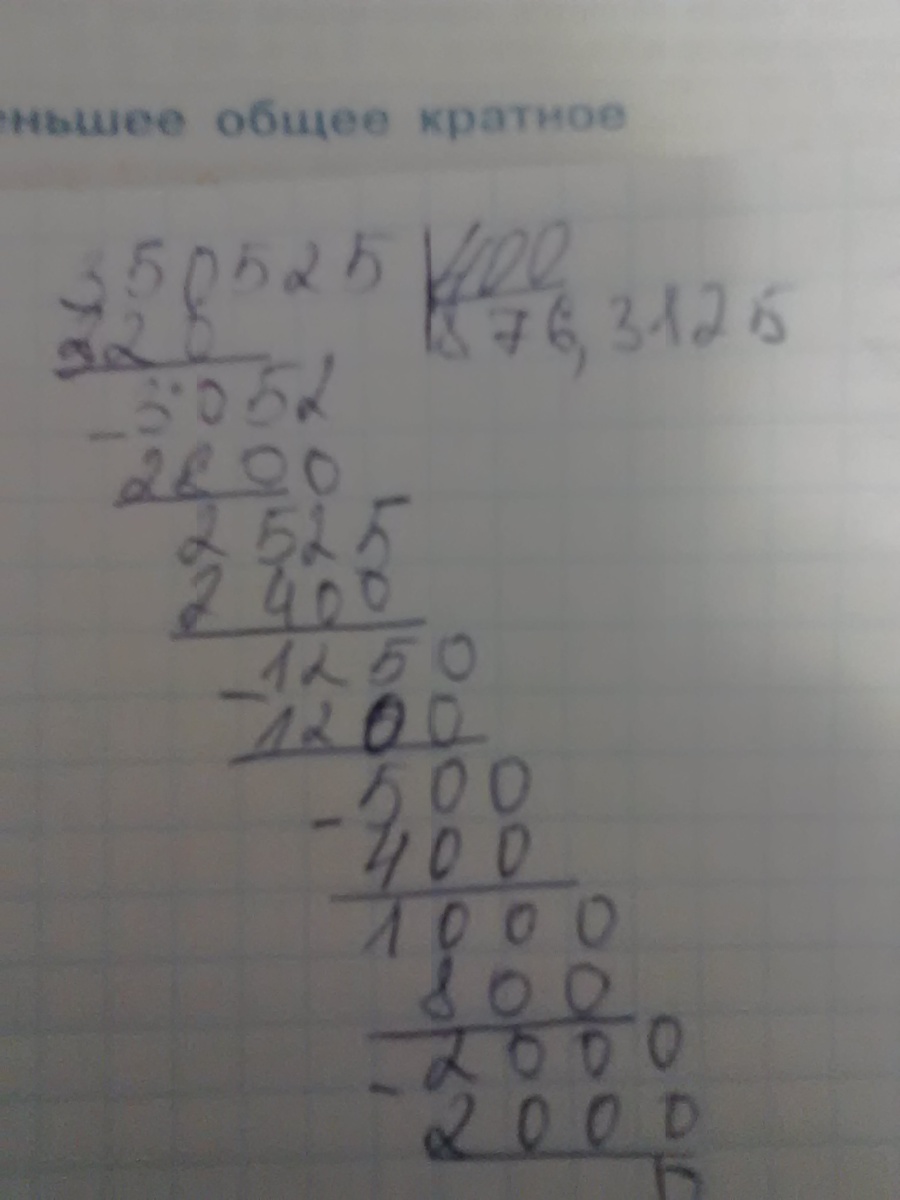 еньшее общее кратное
350525 400
320 876,3125
-3052
2800
2525
2400
-1250
1200
-500
400
1000
800
-2000
2000
0